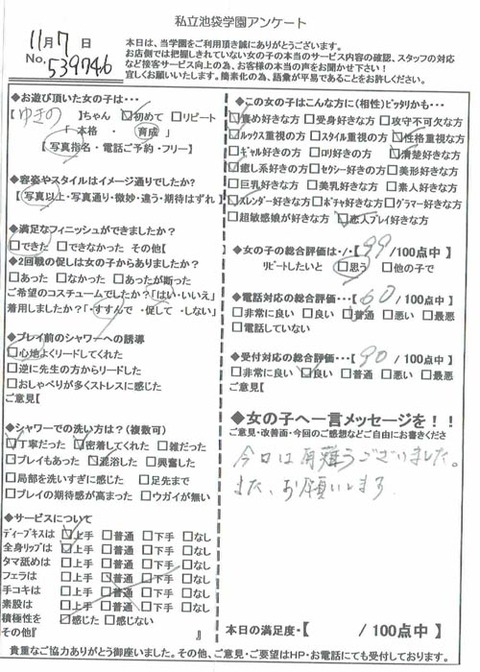 私立池袋学園アンケート
11月7日
No. 539746
本日は、当学園をご利用頂き誠にありがとうございます。
お店側では把握しきれていない女の子の本当のサービス内容の確認、スタッフの対応
など接客サービス向上の為、お客様の本当の声をお聞かせ下さい！
宜しくお願いいたします。簡素化の為、語彙が平易であることをお許しください。
◆お遊び頂いた女の子は・・・
【ゆきの】ちゃん □初めて □リピート
「本格 ・ 育成」
【写真指名・電話ご予約・フリー】
◆容姿やスタイルはイメージ通りでしたか？
【写真以上・写真通り・微妙・違う・期待はずれ】
◆満足なフィニッシュができましたか？
□できた □できなかった その他【
◆2回戦の促しは女の子からありましたか？
□あった □なかった □あったが断った
ご希望のコスチュームでしたか？「はい・いいえ」
着用しましたか？「-すすんで -促して -しない」
◆プレイ前のシャワーへの誘導
□心地よくリードしてくれた
□逆に先生の方からリードした
□おしゃべりが多くストレスに感じた
ご意見【
◆シャワーでの洗い方は？（複数可）
□丁寧だった □密着してくれた □雑だった
□プレイもあった □混浴した □興奮した
□局部を洗いすぎに感じた □足先まで
□プレイの期待感が高まった □ウガイが無い
◆サービスについて
ディープキスは □上手 □普通 □下手 □なし
全身リップは □上手 □普通 □下手 □なし
タマ舐めは □上手 □普通 □下手 □なし
フェラは □上手 □普通 □下手 □なし
手コキは □上手 □普通 □下手 □なし
素股は □上手 □普通 □下手 □なし
積極性を □感じた □感じない
その他『 』
◆この女の子はこんな方に（相性）ピッタリかも・・・
□責め好きな方 □受身好きな方 □攻守不可欠な方
□ルックス重視の方 □スタイル重視の方 □性格重視な方
□ギャル好きの方 □ロリ好きの方 □清楚好きな方
□癒し系好きの方 □セクシー好きの方 □美形好きな方
□巨乳好きな方 □美乳好きな方 □素人好きな方
□スレンダー好きな方 □ポチャ好きな方 □グラマー好きな方
□超敏感娘が好きな方 □恋人プレイ好きな方
◆女の子の総合評価は・・・【99/100点中】
リピートしたいと □思う □他の子で
◆電話対応の総合評価・・・【60/100点中】
□非常に良い □良い □普通 □悪い □最悪
□電話していない
◆受付対応の総合評価・・・【90/100点中】
□非常に良い □良い □普通 □悪い □最悪
ご意見【
◆女の子へ一言メッセージを！！
ご意見・改善面・今回のご感想などご自由にお書きくださ
今日は有難うございました。
また、お願いします
本日の満足度・【 /100点中】
貴重なご協力ありがとう御座いました。その他、ご意見・ご要望はHP・お電話にても受付しております。